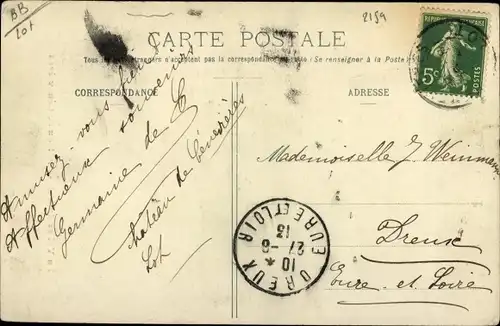 BB
Lot
2159
CARTE POSTALE
Tous les étrangers n'acceptent pas la correspondance (Se renseigner à la Poste)
CORRESPONDANCE
ADRESSE
RÉPUBLIQUE FRANÇAISE
5c
Amusez-vous bien
Affectueux souvenirs
Germaine de
Château de
Lot
Mademoiselle J. Weinmeye
Dreux
Eure-et-Loire
DREUX
10 *
27-8
13
EURE ET LOIR